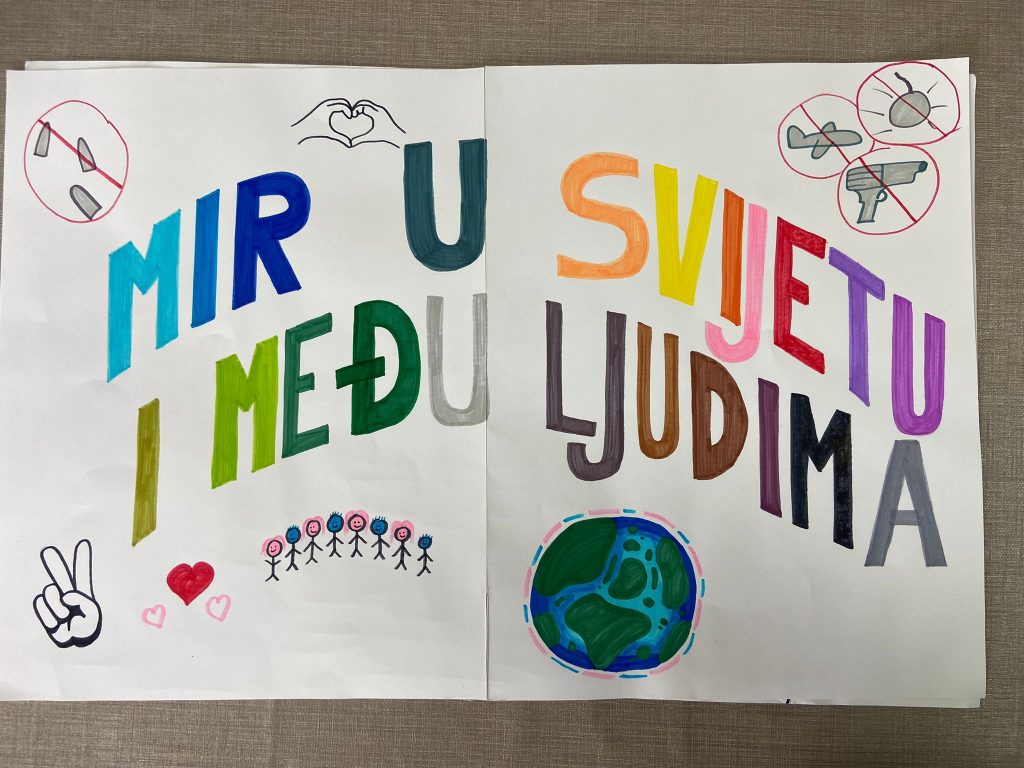 MIR U SVIJETU
I MEĐU LJUDIMA